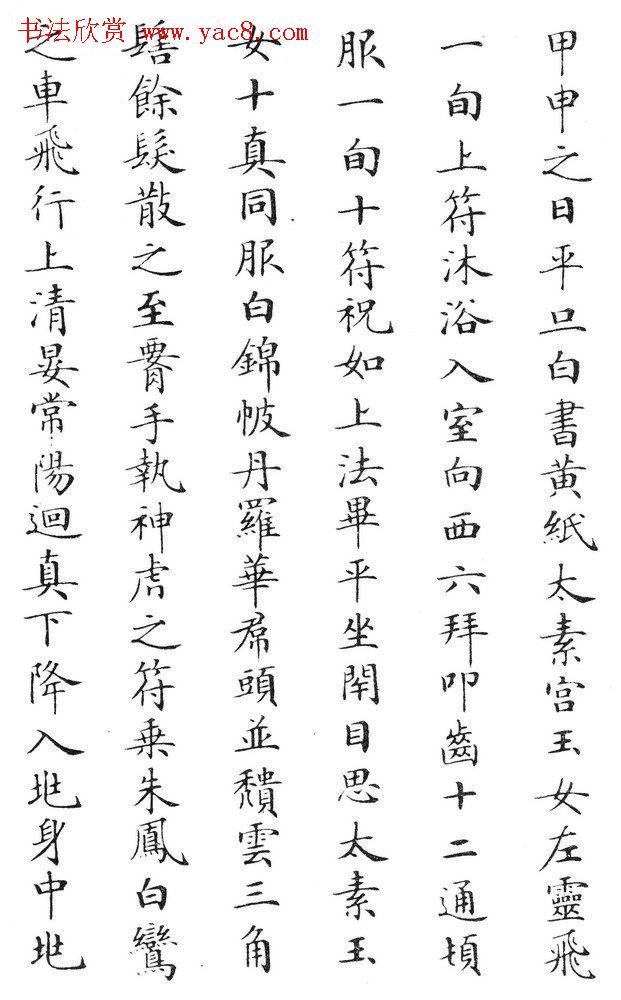 书法欣赏 www.yac8.com
甲申之日平旦白書黃紙太素宮玉女左靈飛
一旬上符沐浴入室向西六拜叩齒十二通頓
服一旬十符祝如上法畢平坐閇目思太素玉
女十真同服白錦帔丹羅華帬頭並穨雲三角
髻餘髮散之至𦝫手執神虎之符乗朱鳳白鸞
之車飛行上清晏常陽迴真下降入𡊣身中𡊣